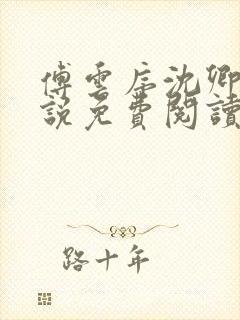 傅雲卮沈卿
說免費閱讀
路十年